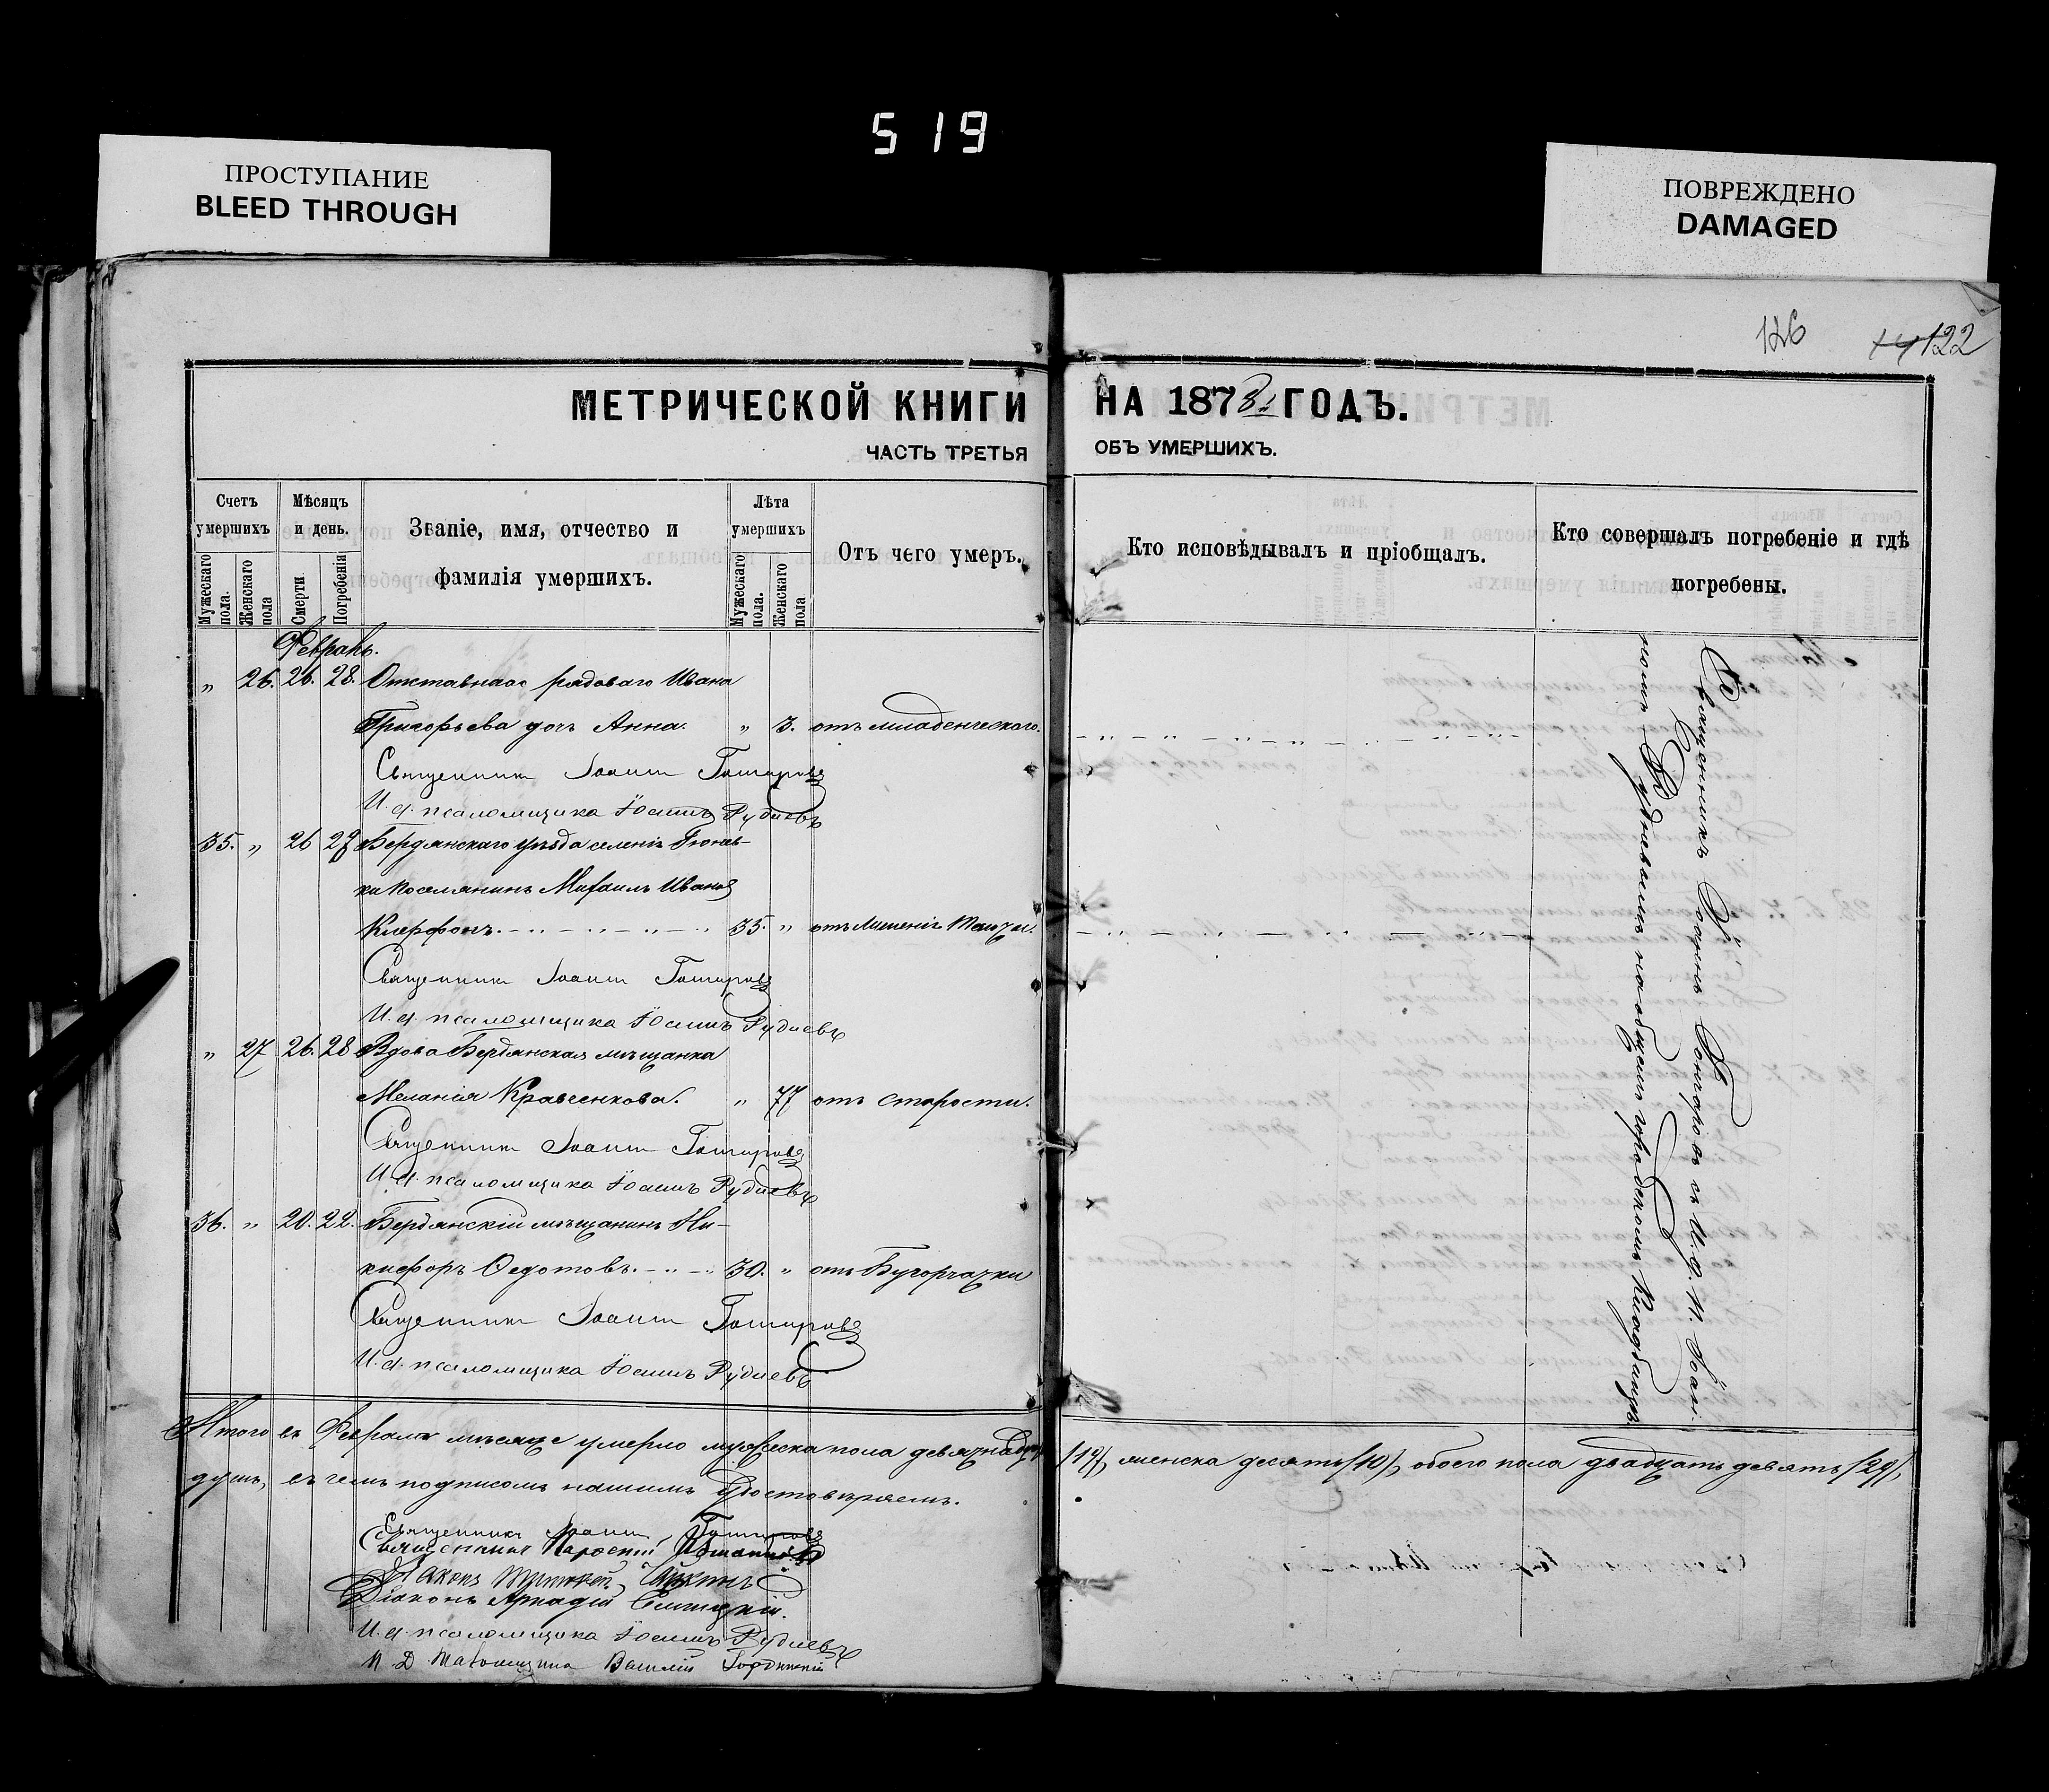 519
ПРОСТУПАНИЕ
BLEED THROUGH
ПОВРЕЖДЕНО
DAMAGED
126 122
МЕТРИЧЕСКОЙ КНИГИ НА 1878 ГОДЪ.
ЧАСТЬ ТРЕТЬЯ ОБЪ УМЕРШИХЪ.
Счетъ умершихъ
Мужескаго пола.
Женскаго пола
Мѣсяцъ и день.
Смерти.
Погребенія
Званіе, имя, отчество и фамилія умершихъ.
Лѣта умершихъ
Мужескаго пола.
Женскаго пола
Отъ чего умеръ.
Кто исповѣдывалъ и пріобщалъ.
Кто совершалъ погребеніе и гдѣ погребены.
Февраль.
„ 26. 26. 28. Отставнаго рядоваго Ивана
Григорьева дочь Анна. „ 3. отъ младенческаго.
Священникъ Іоаннъ
И.д. псаломщика Іоаннъ Рудневъ
35. „ 26 27 Бердянскаго уѣзда селенія
ки поселянинъ Михаилъ Ивановъ
35. „ отъ
Священникъ Іоаннъ
И.д. псаломщика Іоаннъ Рудневъ
„ 27 26. 28 Вдова Бердянская мѣщанка
Меланія Кравченкова. „ 77 отъ старости.
Священникъ Іоаннъ
И.д. псаломщика Іоаннъ Рудневъ
36. „ 20. 22. Бердянскій мѣщанинъ Ни-
кифоръ Ѳедотовъ. 30. „ отъ Бугорчатки
Священникъ Іоаннъ
И.д. псаломщика Іоаннъ Рудневъ
Священникъ Іоаннъ съ И.д. П. Іоан-
номъ Рудневымъ на общемъ городскомъ кладбищѣ
Итого въ Февралѣ мѣсяцѣ умерло мужеска пола девятнадцать /19/, женска десять /10/, обоего пола двадцать девять /29/,
душъ, въ чемъ подписомъ нашимъ удостовѣряемъ.
Священникъ Іоаннъ
Священникъ
Діаконъ
Діаконъ Аркадій
И.д. псаломщика Іоаннъ Рудневъ
И Д Василій